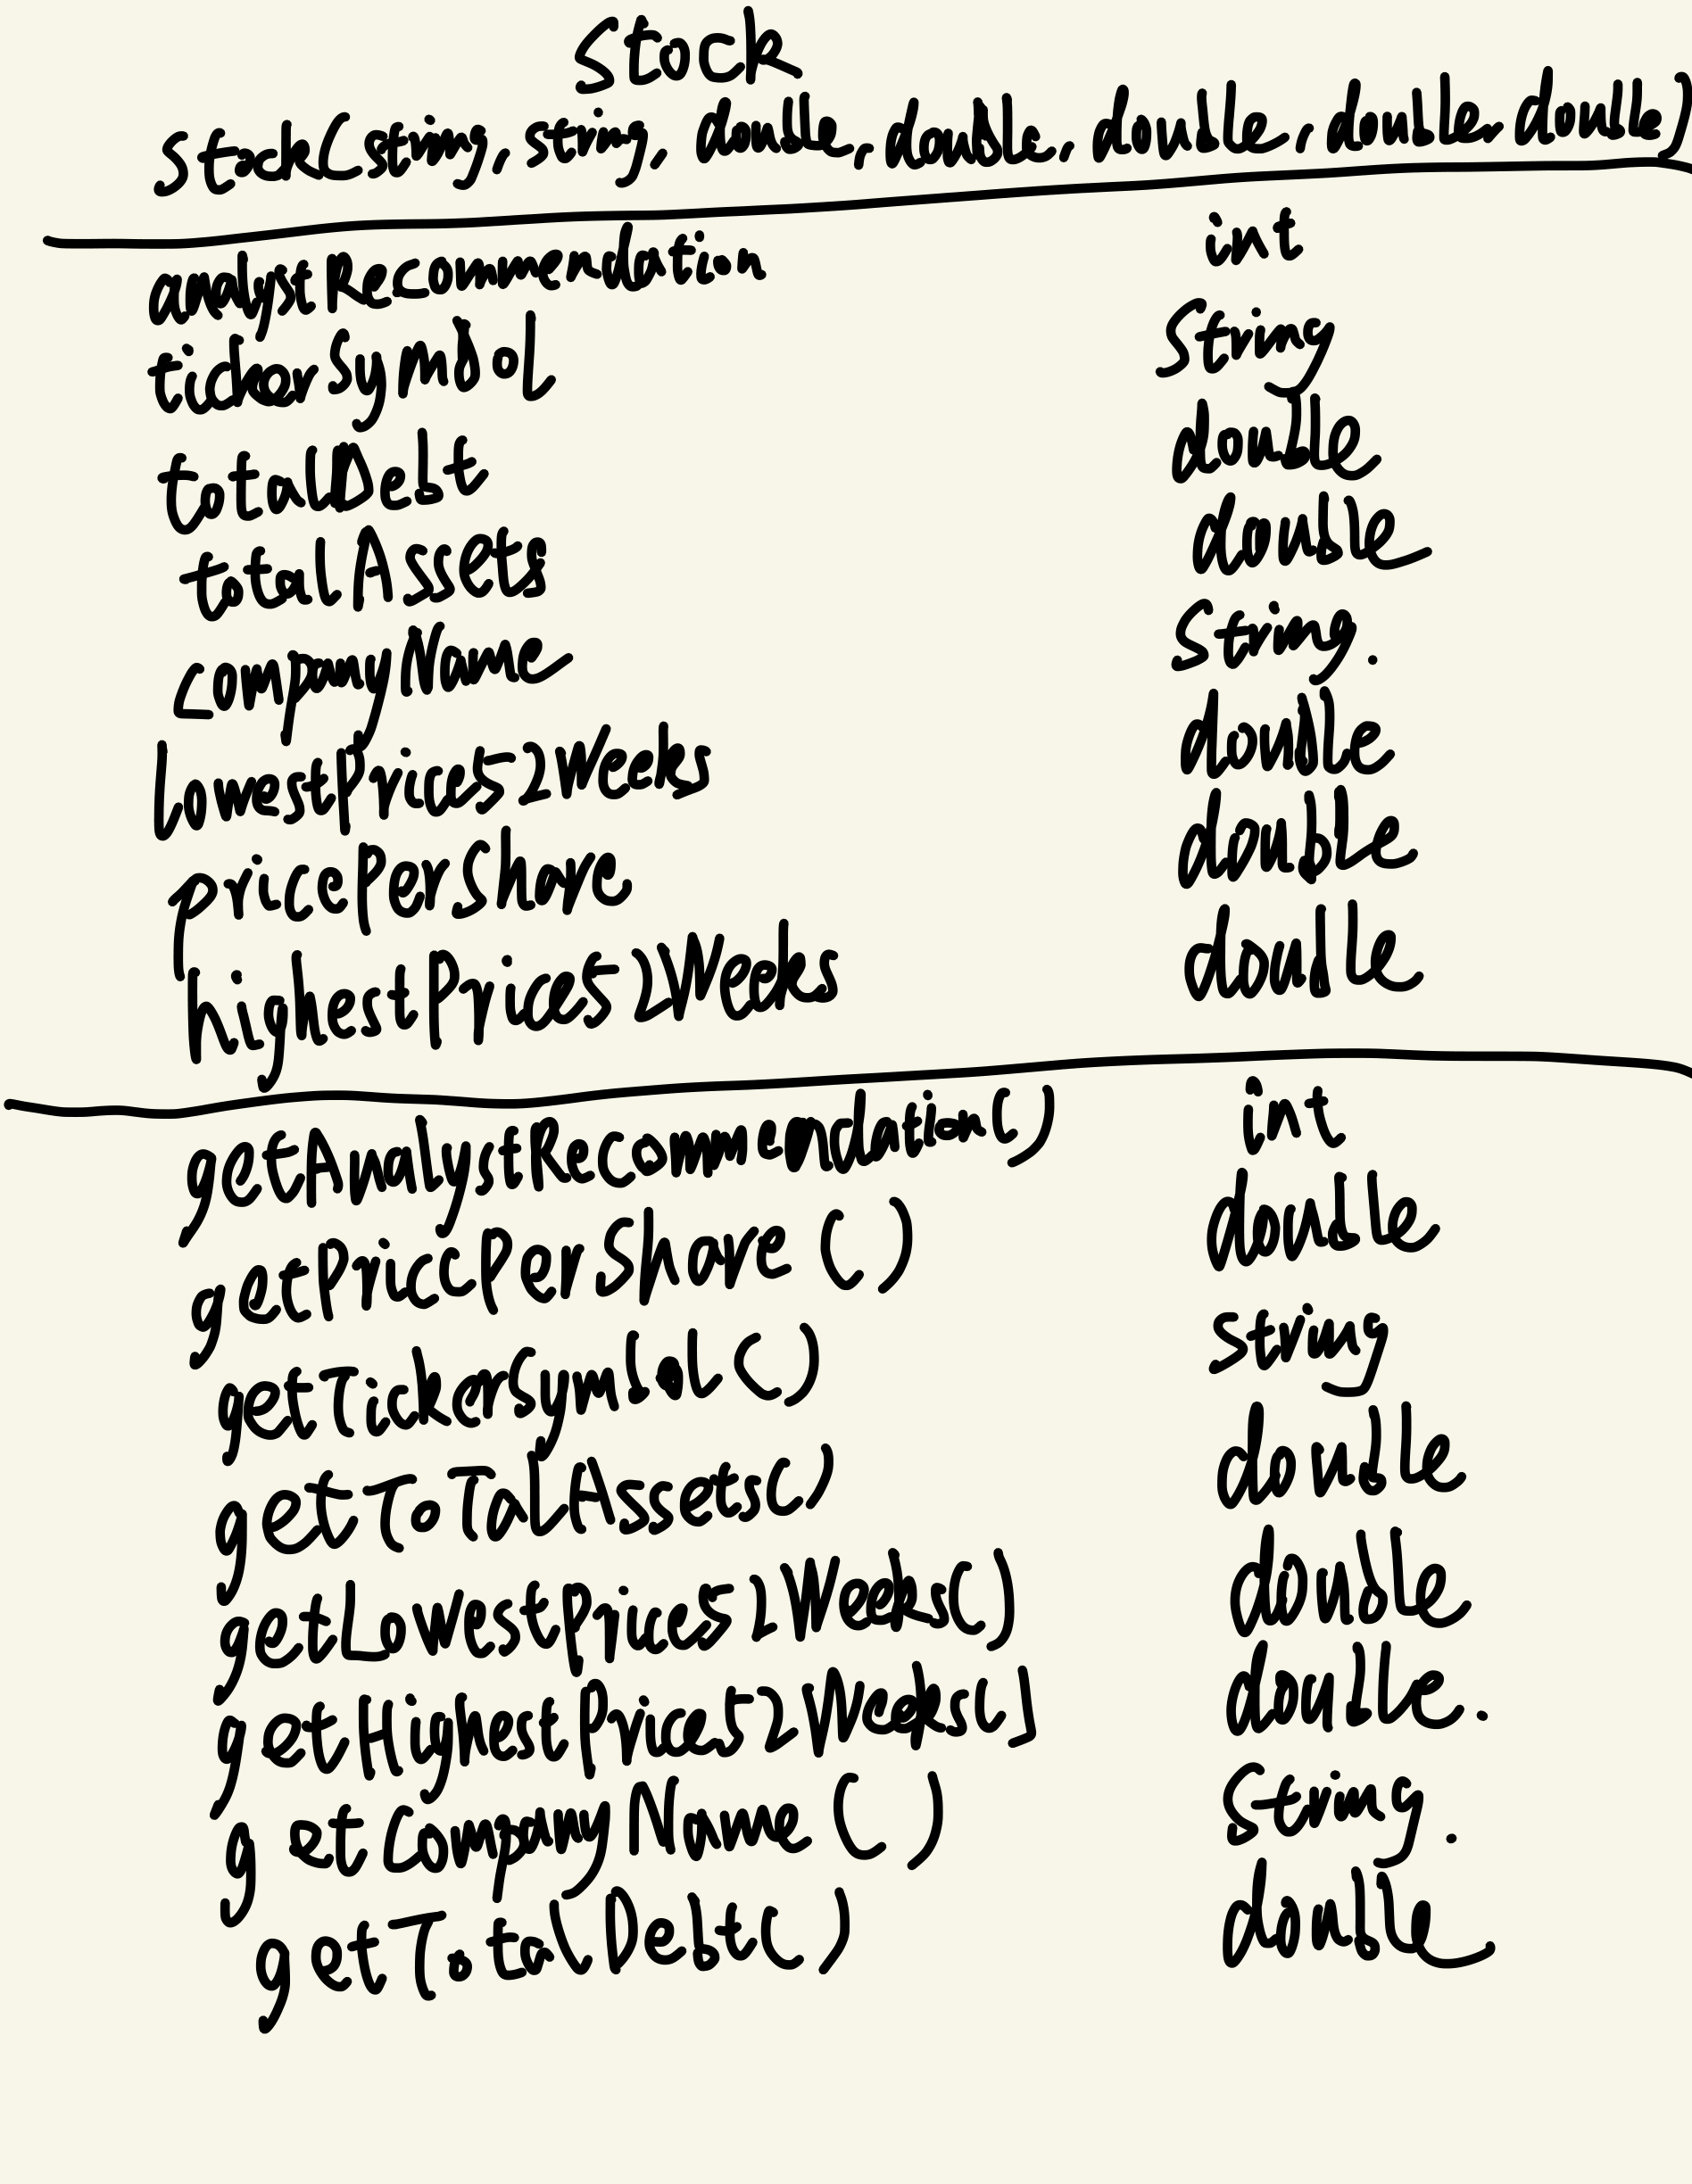 Stock
stock(string, string, double, double, double, double, double)
analystRecommendation int
tickerSymbol String
totalDebt double
totalAssets double
companyName String.
lowestPrice52Weeks double
pricePerShare double
highestPrice52Weeks double
getAnalystRecommendation() int
getPricePerShare() double
getTickerSymbol() string
getToTalAssets() double
getLowestPrice52Weeks() double
getHighestPrice52Weeks() double.
getCompanyName() String.
getTotalDebt() double